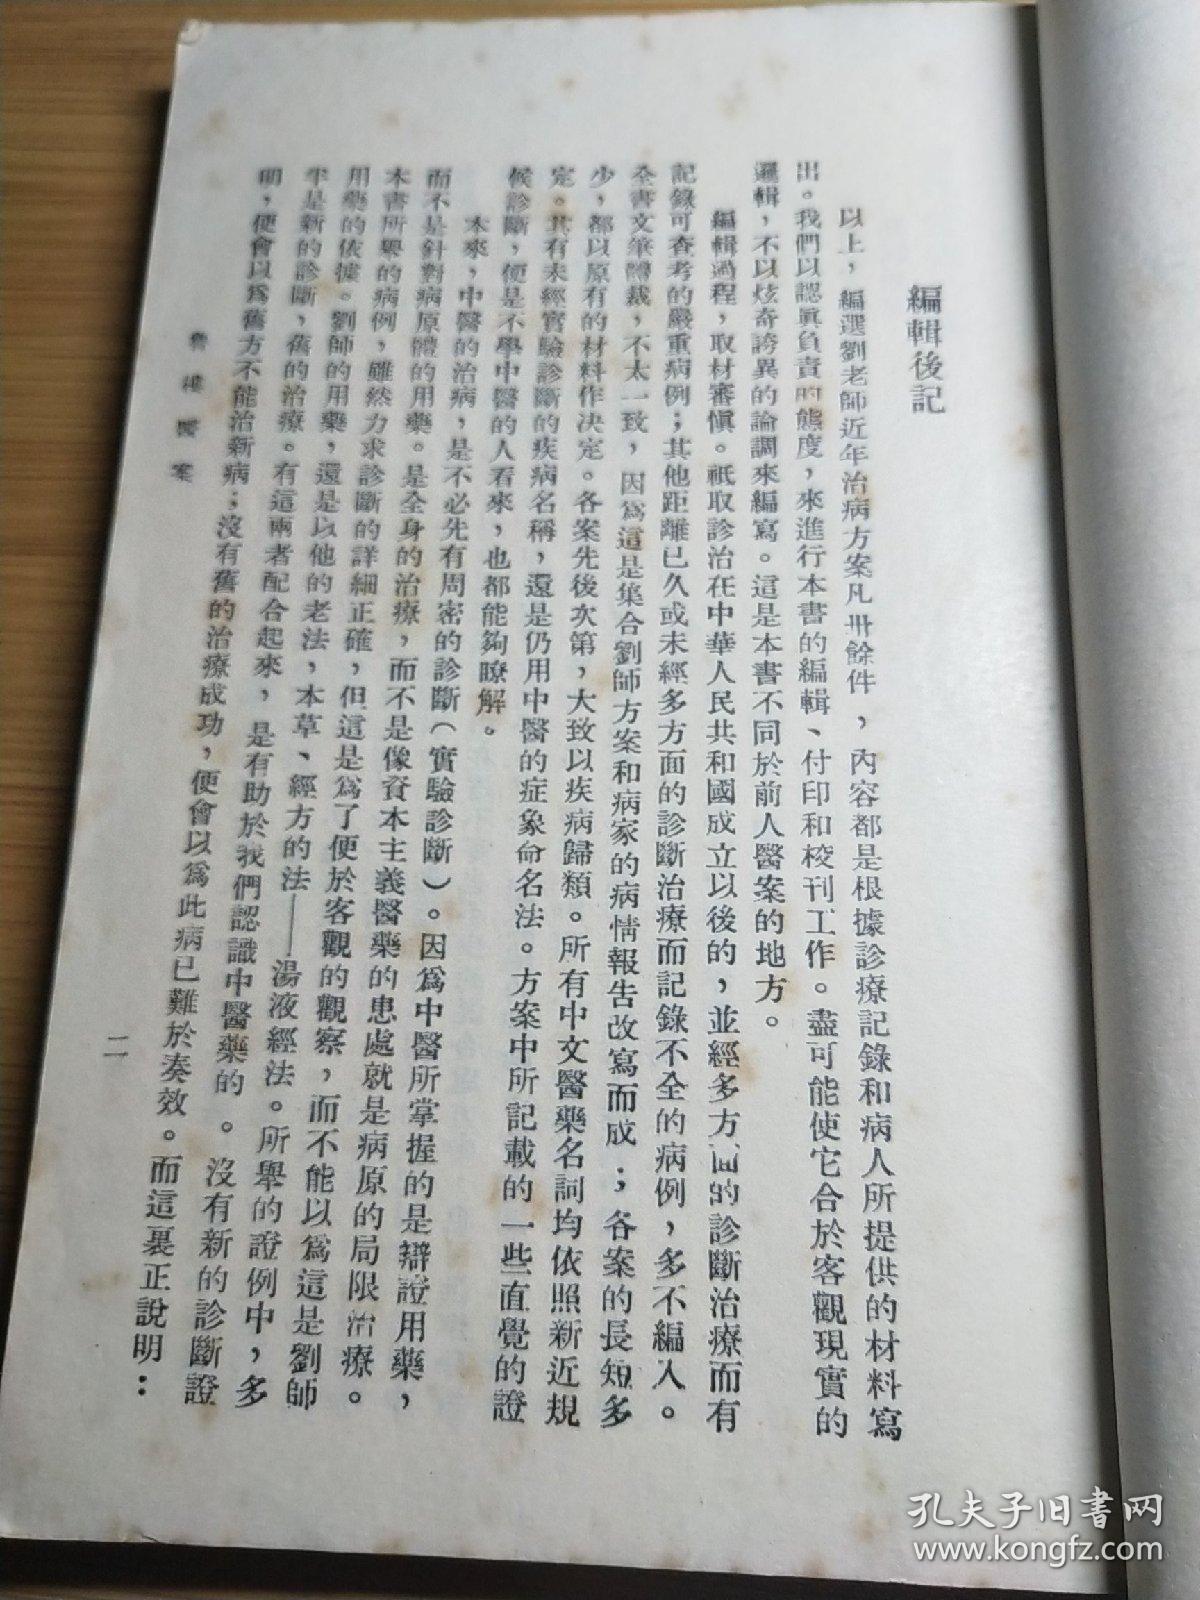 編輯後記
以上，編選劉老師近年治病方案凡卅餘件，內容都是根據診療記錄和病人所提供的材料寫
出。我們以認眞負責的態度，來進行本書的編輯、付印和校刊工作。盡可能使它合於客觀現實的
邏輯，不以炫奇誇異的論調來編寫。這是本書不同於前人醫案的地方。
編輯過程，取材審愼。祇取診治在中華人民共和國成立以後的，並經多方面的診斷治療而有
記錄可查考的嚴重病例；其他距離已久或未經多方面的診斷治療而記錄不全的病例，多不編入。
全書文筆體裁，不太一致，因爲這是集合劉師方案和病家的病情報告改寫而成；各案的長短多
少，都以原有的材料作決定。各案先後次第，大致以疾病歸類。所有中文醫藥名詞均依照新近規
定。其有未經實驗診斷的疾病名稱，還是仍用中醫的症象命名法。方案中所記載的一些直覺的證
候診斷，便是不學中醫的人看來，也都能夠瞭解。
本來，中醫的治病，是不必先有周密的診斷（實驗診斷）。因爲中醫所掌握的是辯證用藥，
而不是針對病原體的用藥。是全身的治療，而不是像資本主義醫藥的患處就是病原的局限治療。
本書所舉的病例，雖然力求診斷的詳細正確，但這是爲了便於客觀的觀察，而不能以爲這是劉師
用藥的依據。劉師的用藥，還是以他的老法，本草、經方的法——湯液經法。所舉的證例中，多
半是新的診斷，舊的治療。有這兩者配合起來，是有助於我們認識中醫藥的。沒有新的診斷證
明，便會以爲舊方不能治新病；沒有舊的治療成功，便會以爲此病已難於奏效。而這裏正說明：
魯樓醫案
二
孔夫子旧书网
www.kongfz.com